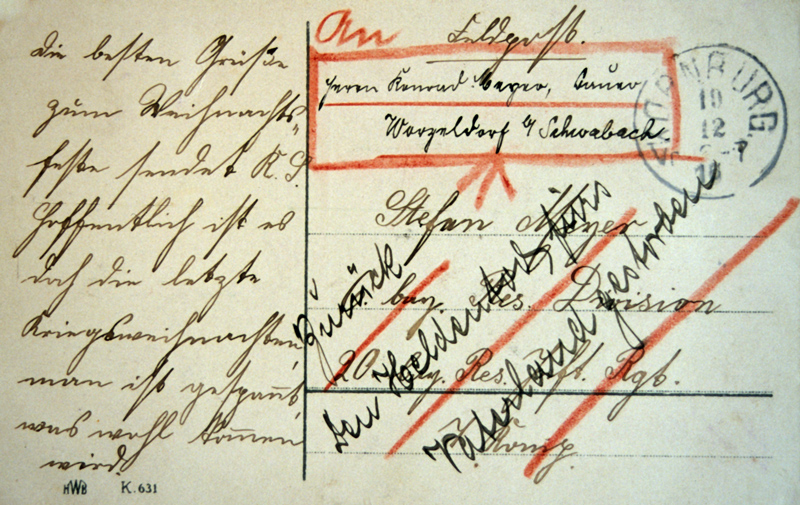 die besten Grüße
zum Weihnachts-
feste sendet K. S.
Hoffentlich ist es
doch die letzte
Kriegsweihnachten
man ist gespannt
was wohl kommen
wird.
HWB K. 631
An Feldpost.
Herrn Konrad Meyer, Bauer
Worzeldorf b/ Schwabach
Stefan Meyer
bay. Res. Division
20. bay. Res. Inft. Rgb.
7. Komp.
Zurück.
Den Heldentod fürs
Vaterland gestorben
NBURG
19
12